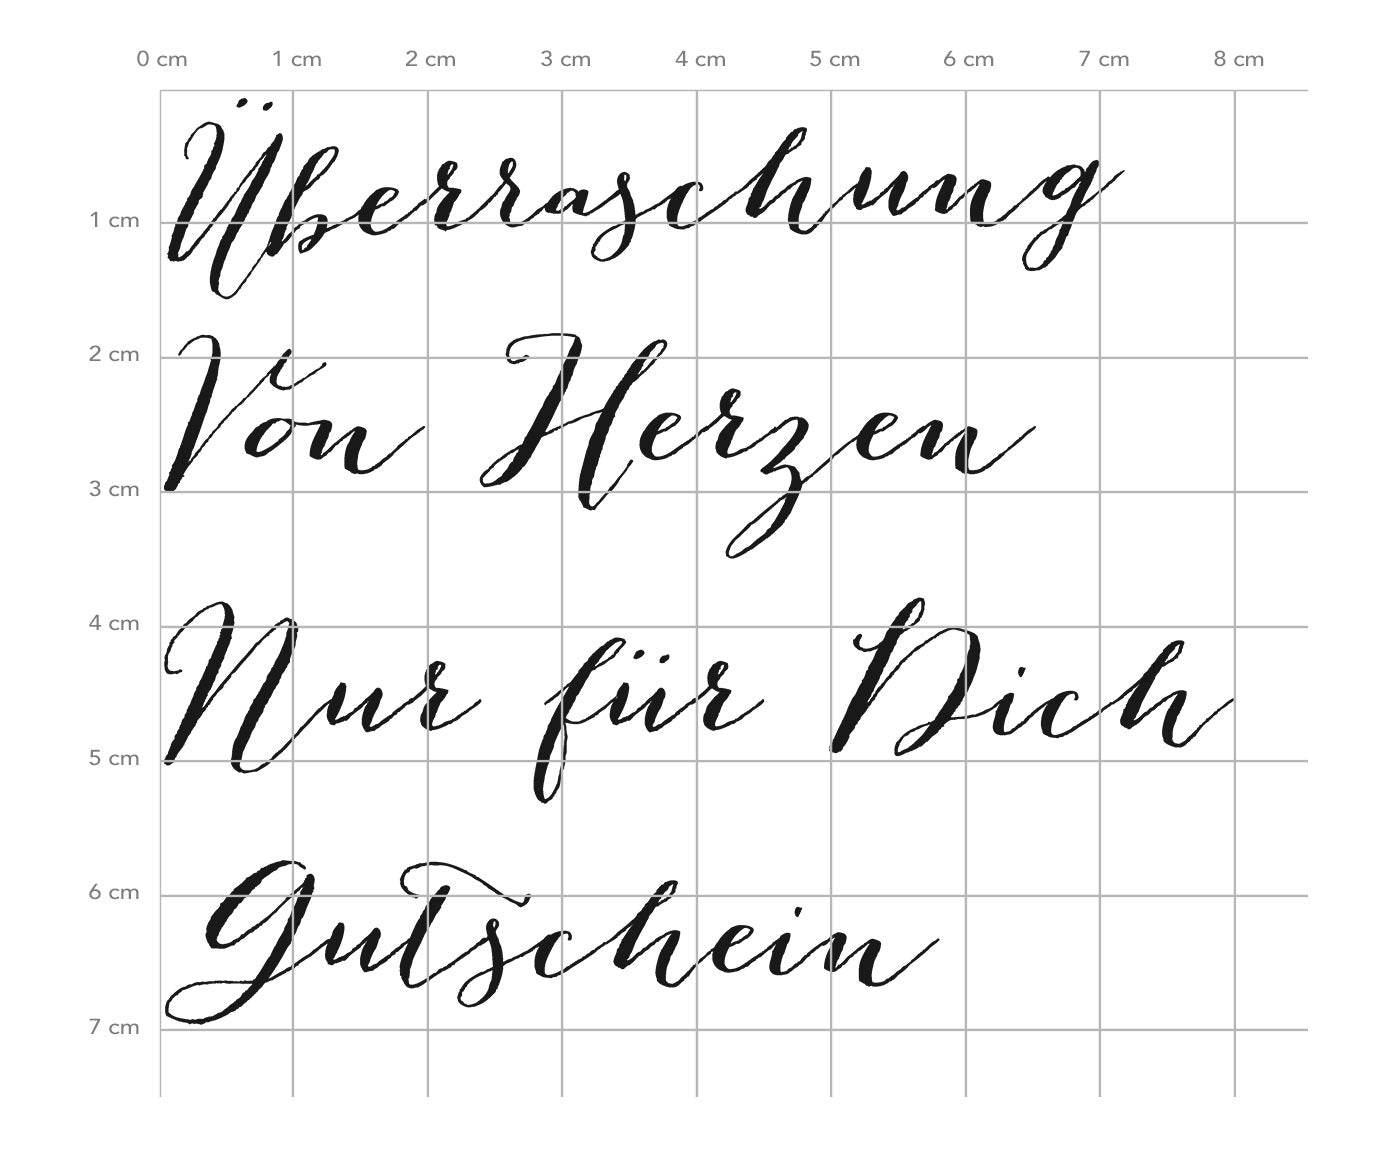 0 cm 1 cm 2 cm 3 cm 4 cm 5 cm 6 cm 7 cm 8 cm
Überraschung
1 cm
2 cm
Von Herzen
3 cm
4 cm
Nur für Dich
5 cm
6 cm
Gutschein
7 cm